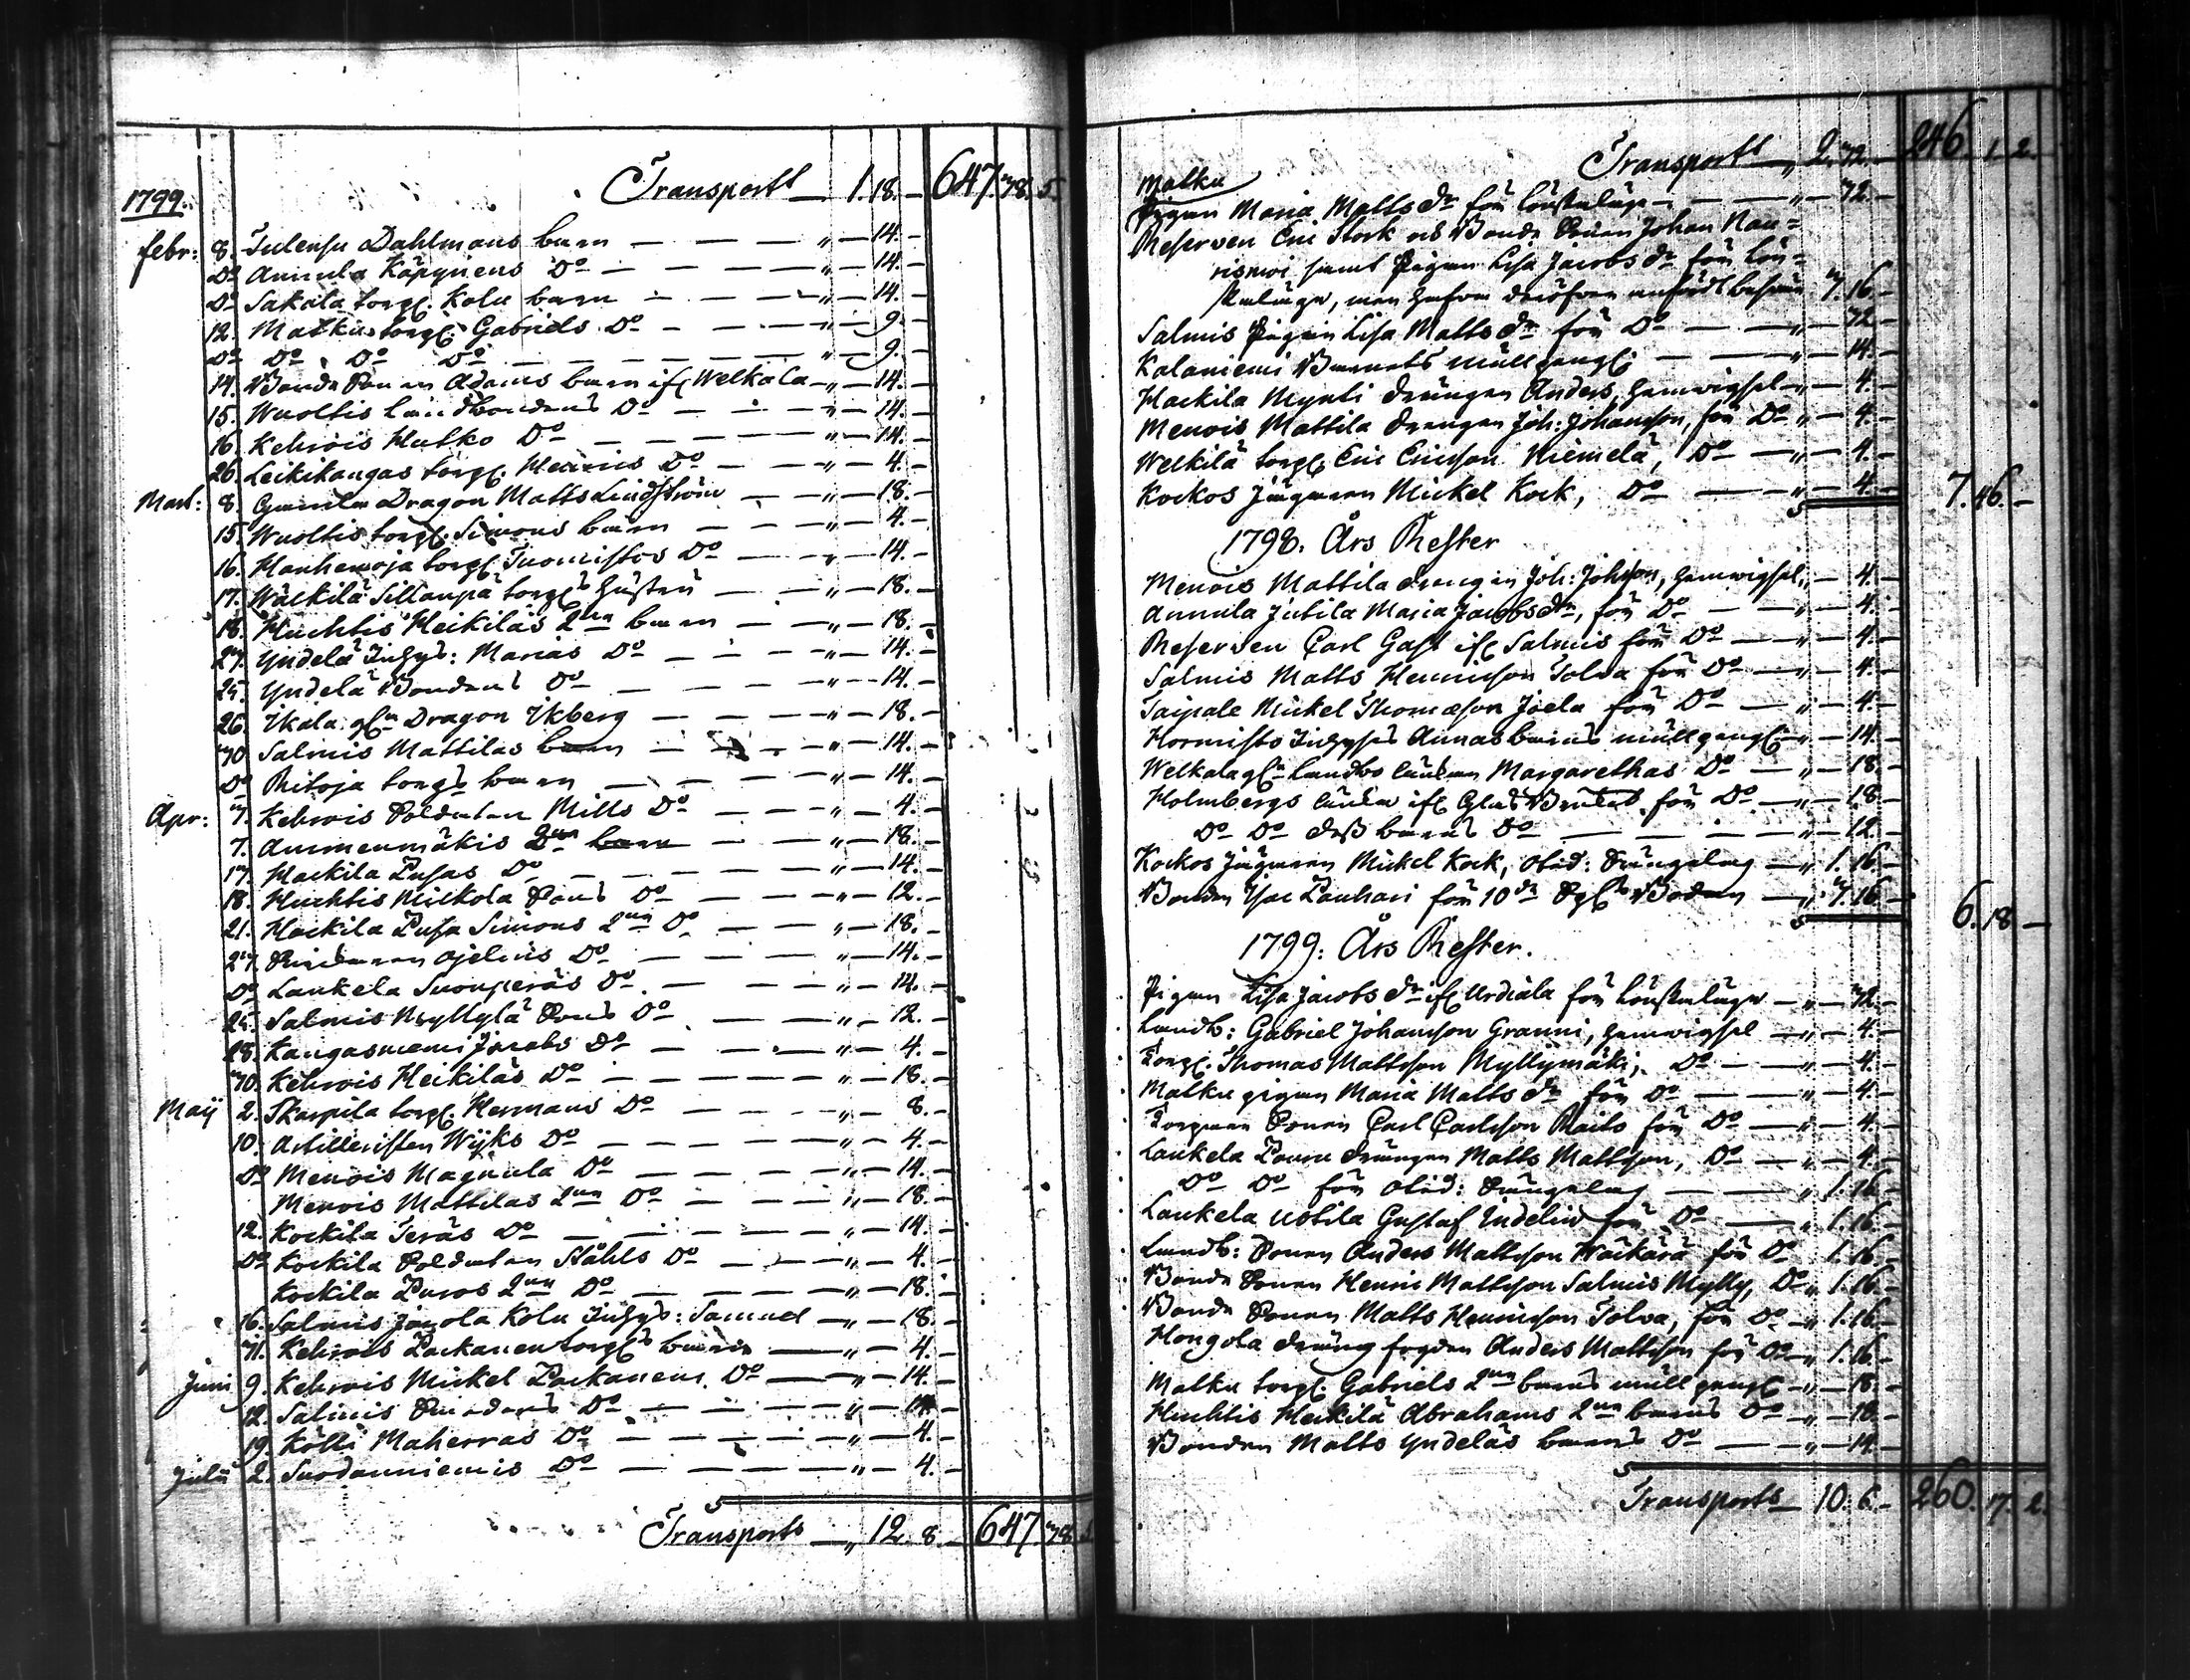 Transport — 1. 18. — 647. 38. 5.
1799.
febr: 8. Dahlmans barn — — — „ — 14. —
Do Annula Käpyneus Do — — — „ — 14. —
Do Sakala torp. Kolu barn — — — „ — 14. —
12. Matku torp. Gabriels Do — — — „ — 9. —
Do Do Do Do — — — „ — 9. —
14. Bonde Sonen Adams barn if. Welkala — „ — 14. —
15. Wuoltis Landbondens Do — — — „ — 14. —
16. Kehrois Hutko Do — — — „ — 14. —
26. Leikikangas torp. Henrics Do — — „ — 4. —
Mart: 8. Dragon Matts Lindström — — „ — 18. —
15. Wuoltis torp. Simons barn — — — „ — 4. —
16. Hanhenoja torp. Tuomistos Do — — „ — 14. —
17. Wälkilä Sillanpä torp.s Hustru — — „ — 18. —
18. Huchtis Heikiläs 2ne barn — — „ — 18. —
Yndelä Inhys: Marias Do — — — „ — 14. —
25. Yndelä Bondens Do — — — „ — 14. —
26. Ikala Dragon Ekberg — — — „ — 18. —
30 Salmis Mattilas barn — — — „ — 14. —
Do Ritoja torp.s barn — — — „ — 14. —
Apr: 3. Kehrois Soldaten Mills Do — — — „ — 4. —
7. Ammenmäkis 2ne barn — — „ — 18. —
17. Hackila Pusas Do — — — „ — 14. —
18. Huchtis Mickola Sons Do — — „ — 12. —
21. Hackila Pusa Simons 2ne Do — — „ — 18. —
Ojelius Do — — — „ — 14. —
Do Laukela Suonperäs Do — — — „ — 14. —
25. Salmis Myllylä Sons Do — — „ — 12. —
28. Kangasniemi Jacobs Do — — — „ — 4. —
30. Kehrois Heikiläs Do — — — „ — 18. —
Maij 2. Skarpila torp. Hermans Do — — „ — 8. —
10. Artilleristen Wijks Do — — — „ — 4. —
Do Menois Do — — — „ — 14. —
Menois Mattilas 2ne Do — — „ — 18. —
12. Kockila Teräs Do — — — „ — 14. —
Do Kockila Soldaten Ståhls Do — — „ — 4. —
Kockila Puros 2ne Do — — — „ — 18. —
16. Salmis Kolu Inhys: Samuel — „ — 18. —
31. Kehrois Packanen torp.s barn — „ — 4. —
Junij 9. Kehrois Mickel Packanens Do — — „ — 14. —
12. Salmis Do — — — „ — 14 —
19. Kölli Maherras Do — — — „ — 4. —
Julii 2. Suodanniemis Do — — — „ — 4. —
Transport — „ 12. 8. — 647. 38
Transport — „ 2. 32. — 246. 1. 2.
Matku
Pigan Maria Matts dr för Lönskaläge — — — „ — 32. —
Reserven Eric Stork och Bonde Sonen Johan Nau=
rismoi samt Pigan Lisa Jacobs dr för Lön=
skaläge, men 3. 16. —
Salmis Pigan Lisa Matts dr för Do — — „ — 32. —
Kalaniemi Barnets mullpengl. — — „ — 14. —
Hackila Mynti drängen Anders, hemvigsel — „ — 4. —
Menois Mattila drengen Joh: Johansson, för Do „ — 4. —
Welkilä torp. Eric Ericsson Niemelä, Do — „ — 4. —
Kockos Jägaren Mickel Kock, Do — — „ — 4. — 7. 46. —
1798. Års Rester
Menois Mattila drengen Joh: Johsson, hemvigsel „ — 4. —
Annula Jutila Maria Jacobs dr, för Do — — „ — 4. —
Reserven Carl Gast if. Salmis för Do — — „ — 4. —
Salmis Matts Henricsson Tolva för Do — — „ — 4. —
Taipale Mickel Thomæson Joela för Do — „ — 4. —
Hormisto Inhyses Annas barns mullpengl. — „ — 14. —
Welkala Landbo Enkan Margarethas Do — „ — 18. —
Holmbergs Enka if. Glas Bruket för Do — „ — 18. —
Do Do dess barns Do — — — „ — 12. —
Kockos Jägaren Mickel Kock, Obid: Sängelag — „ 1. 16. —
Bonden Isac Lauhari för 10de Boden — „ 3. 16. — 6. 18 —
1799. Års Rester.
Pigan Lisa Jacobs dr if. Urdiala för Lönskaläge — „ — 32. —
Landb: Gabriel Johansson Granni, hemvigsel — „ — 4. —
Torp. Thomas Mattsson Myllymäki, Do — „ — 4. —
Matku pigan Maria Matts dr för Do — — „ — 4. —
Torpare Sonen Carl Carlsson Raito för Do — „ — 4. —
Laukela drängen Matts Mattsson, Do — „ — 4. —
Do Do för Obid: Sängelag — — „ 1. 16. —
Laukela Uotila Gustaf Indelin för Do — „ 1. 16. —
Landb: Sonen Anders Mattsson för Do 1. 16. —
Bonde Sonen Henric Mattsson Salmis Mylly, Do „ 1. 16. —
Bonde Sonen Matts Henricsson Tolva, för Do — „ 1. 16. —
Hongola dräng fogden Anders Mattsson för Do „ 1. 16. —
Matku torp. Gabriels 2ne barns mullpengl. „ — 18. —
Huchtis Heikilä Abrahams 2ne barns Do — „ — 18. —
Bonden Matts Yndeläs barns Do — — „ — 14. —
Transport — 10. 6. — 260. 17. 2.